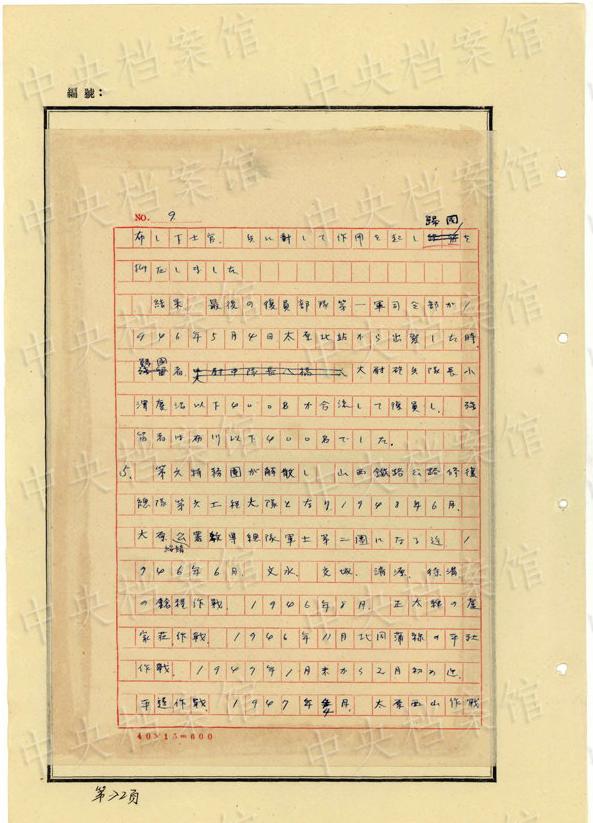 編號：
NO. 9.
歸国
布し下士官、兵に対して作用を起しを
抑圧しました
結果、最後の復員部隊第一軍司令部が1
946年5月4日太原北站から出発した時、
歸国
者、大尉砲兵隊長小
沢広治以下400名が合流して復員し、残
留者は布川以下400名でした。
5、第六特務團が解散し、山西鐵路公路修復
總隊第六土組大隊となり1948年6月、
太原公署教導總隊軍士第二團になる迄、1
绥靖
946年6月、文水、交城、清源、徐溝
の掠糧作戦、1946年8月、正太線の
家荘作戦、1946年11月北同蒲線の平社
作戦、1947年1月末から2月初の迄、
平遥作戦、1947年4月、太原西山作戦
40×15=600
第32页
中央档案馆